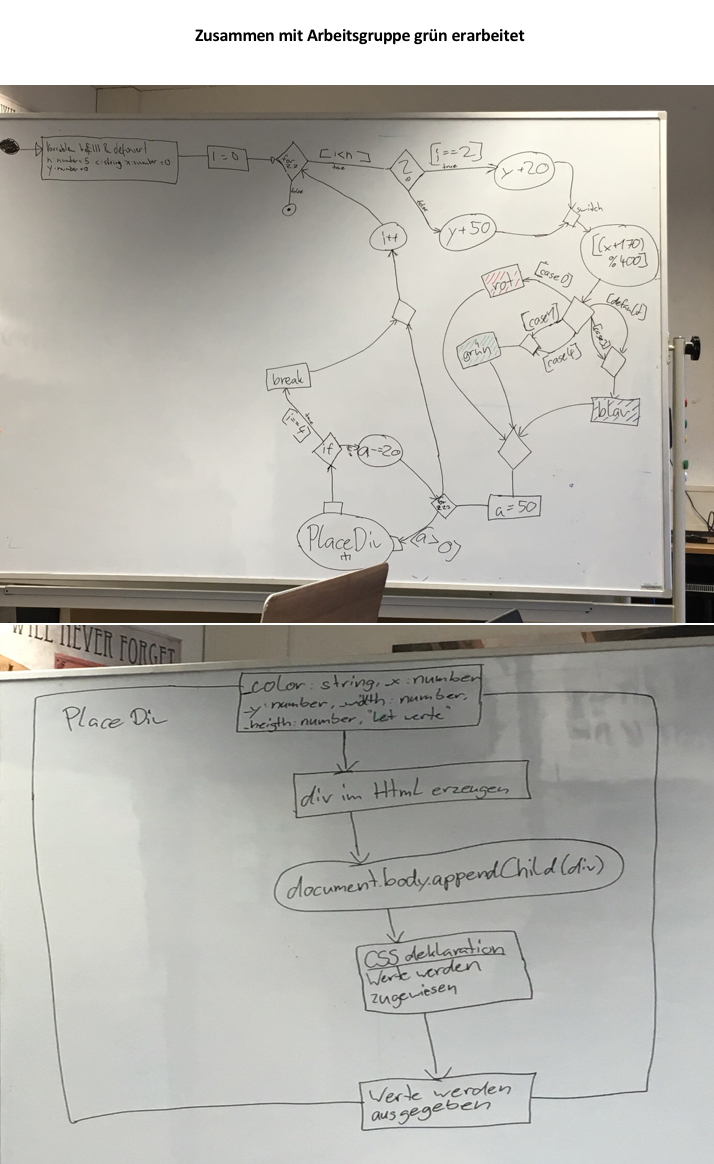 Zusammen mit Arbeitsgruppe grün erarbeitet
n: number=5 c: string x: number=0
y: number=0
i=0
[i<n]
true
false
?
[i==2]
true
false
y+20
y+50
switch
[(x+170)
%400]
i++
[case0]
rot
[default]
[case1]
[case4]
grün
blau
break
true
[i==4]
if
a-=20
a=50
[a>0]
PlaceDiv
WILL NEVER FORGET
Place Div
color: string, x: number
y: number, width: number,
heigth: number, "let werte"
div im Html erzeugen
document.body.appendChild(div)
CSS deklaration
Werte werden
zugewiesen
Werte werden
ausgegeben